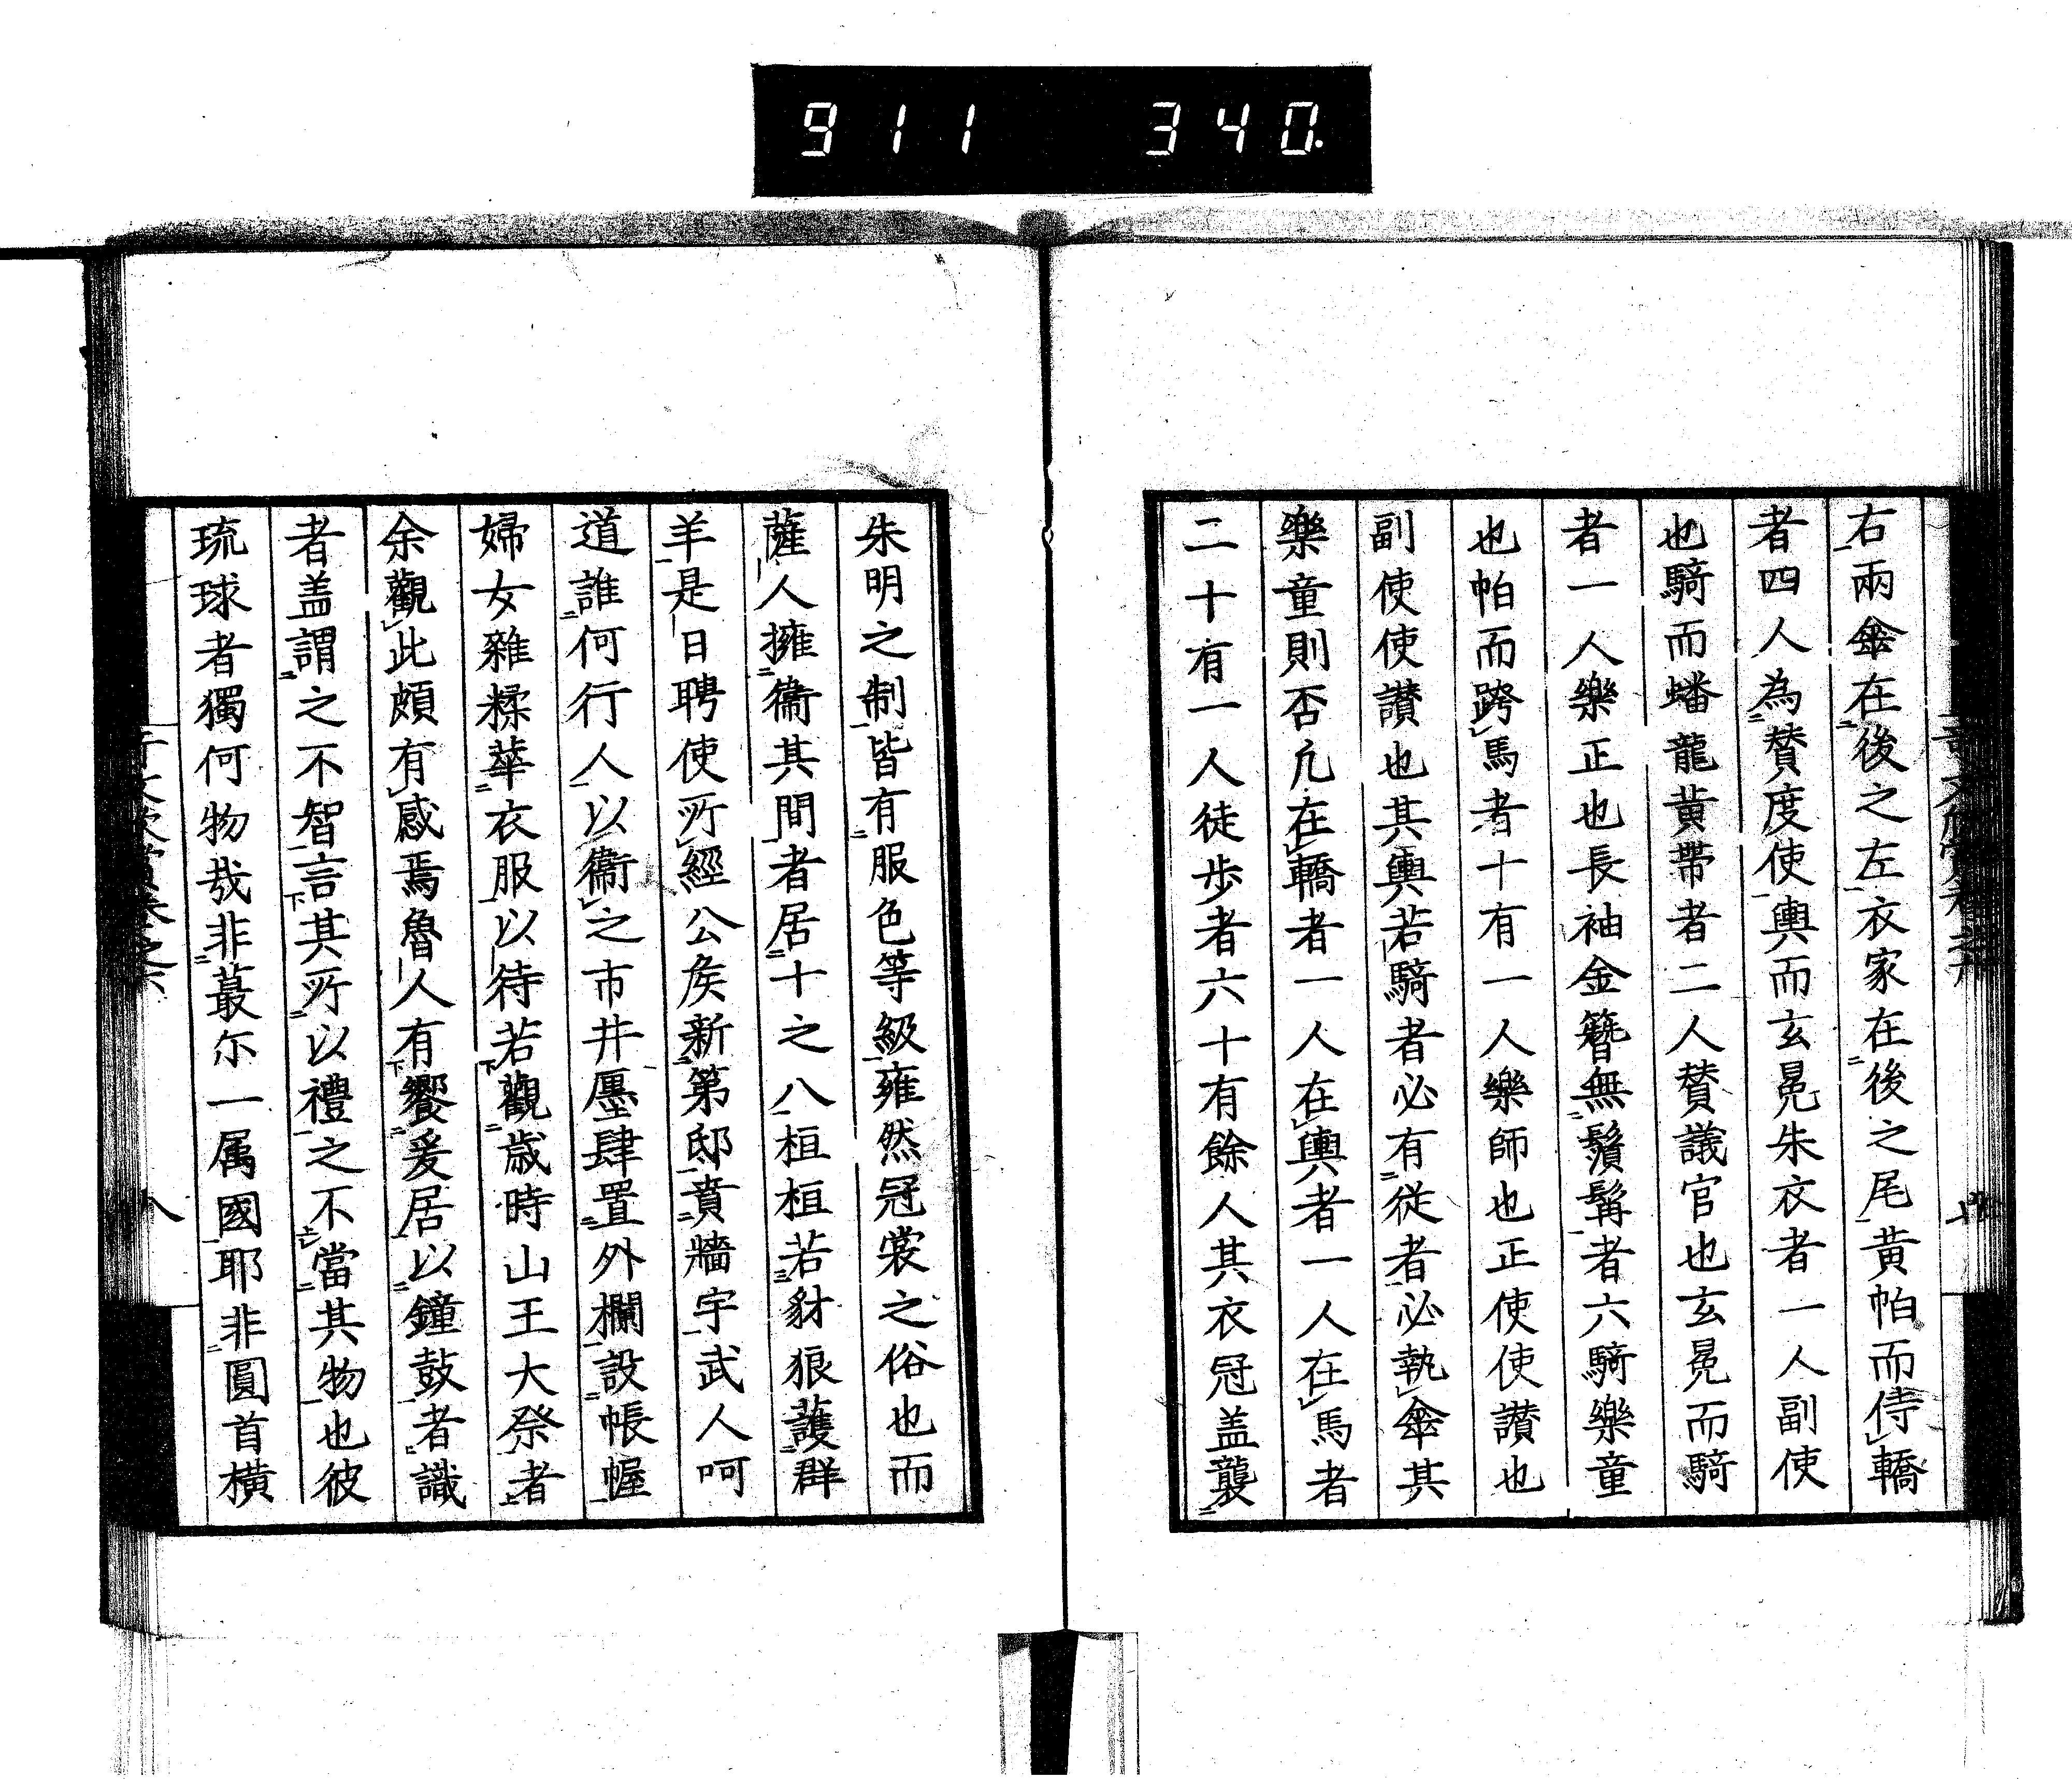 911 340.
右兩傘在後之左衣家在後之尾黃帕而侍轎
者四人為賛度使輿而玄冕朱衣者一人副使
也騎而蟠龍黄帶者二人賛議官也玄冕而騎
者一人樂正也長袖金簪無鬚髯者六騎樂童
也帕而跨馬者十有一人樂師也正使使讃也
副使使讃也其輿若騎者必有從者必執傘其
樂童則否凢在轎者一人在輿者一人在馬者
二十有一人徒步者六十有餘人其衣冠盖襲
朱明之制皆有服色等級雍然冠裳之俗也而
薩人擁衞其間者居十之八桓桓若豺狼護群
羊是日聘使所經公矦新第邸賁牆宇武人呵
道誰何行人以衞之市井壥肆置外欄設帳幄
婦女雜糅華衣服以待若觀歳時山王大祭者
余觀此頗有感焉魯人有饗爰居以鐘鼓者識
者盖謂之不智言其所以禮之不當其物也彼
琉球者獨何物哉非蕞尓一属國耶非圓首橫
八